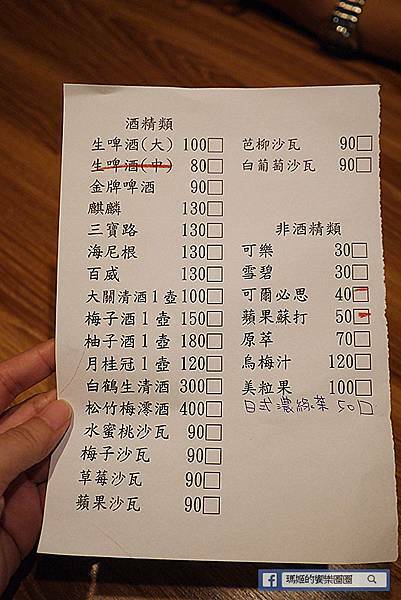 酒精類
生啤酒(大) 100□
生啤酒(中) 80□
金牌啤酒 90□
麒麟 130□
三寶路 130□
海尼根 130□
百威 130□
大關清酒1壺100□
梅子酒1壺 150□
柚子酒1壺 180□
月桂冠1壺 120□
白鶴生清酒 300□
松竹梅澪酒 400□
水蜜桃沙瓦 90□
梅子沙瓦 90□
草莓沙瓦 90□
蘋果沙瓦 90□
芭柳沙瓦 90□
白葡萄沙瓦 90□
非酒精類
可樂 30□
雪碧 30□
可爾必思 40□
蘋果蘇打 50□
原萃 70□
烏梅汁 120□
美粒果 100□
日式濃綠茶 50□
瑪姬的饗樂圈圈